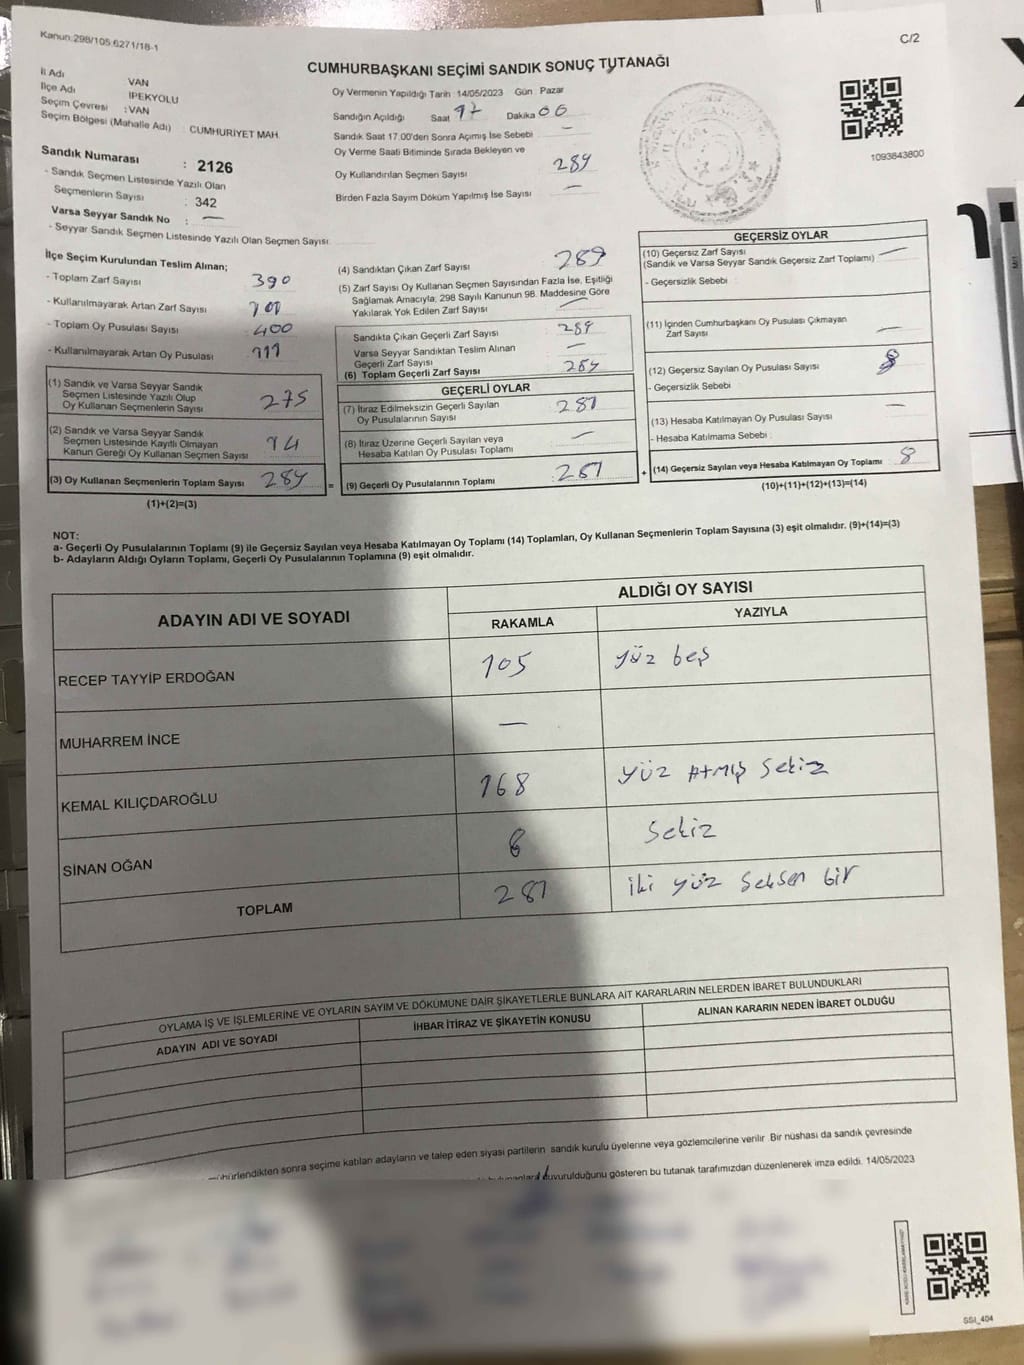 Kanun:298/105.6271/18-1
C/2
CUMHURBAŞKANI SEÇİMİ SANDIK SONUÇ TUTANAĞI
İl Adı VAN
İlçe Adı IPEKYOLU
Seçim Çevresi :VAN
Seçim Bölgesi (Mahalle Adı) : CUMHURİYET MAH.
Sandık Numarası : 2126
- Sandık Seçmen Listesinde Yazılı Olan
Seçmenlerin Sayısı : 342
Varsa Seyyar Sandık No : —
- Seyyar Sandık Seçmen Listesinde Yazılı Olan Seçmen Sayısı
Oy Vermenin Yapıldığı Tarih 14/05/2023 Gün : Pazar
Sandığın Açıldığı Saat 17 Dakika 06
Sandık Saat 17.00'den Sonra Açımış İse Sebebi —
Oy Verme Saati Bitiminde Sırada Bekleyen ve
Oy Kullandırılan Seçmen Sayısı 289
Birden Fazla Sayım Döküm Yapılmış İse Sayısı —
1093843800
İlçe Seçim Kurulundan Teslim Alınan;
- Toplam Zarf Sayısı 390
- Kullanılmayarak Artan Zarf Sayısı 101
- Toplam Oy Pusulası Sayısı 400
- Kullanılmayarak Artan Oy Pusulası 111
(1) Sandık ve Varsa Seyyar Sandık
Seçmen Listesinde Yazılı Olup
Oy Kullanan Seçmenlerin Sayısı 275
(2) Sandık ve Varsa Seyyar Sandık
Seçmen Listesinde Kayıtlı Olmayan
Kanun Gereği Oy Kullanan Seçmen Sayısı 14
(3) Oy Kullanan Seçmenlerin Toplam Sayısı 289
(1)+(2)=(3)
(4) Sandıktan Çıkan Zarf Sayısı 289
(5) Zarf Sayısı Oy Kullanan Seçmen Sayısından Fazla İse, Eşitliği
Sağlamak Amacıyla, 298 Sayılı Kanunun 98. Maddesine Göre
Yakılarak Yok Edilen Zarf Sayısı —
Sandıkta Çıkan Geçerli Zarf Sayısı : 289
Varsa Seyyar Sandıktan Teslim Alınan
Geçerli Zarf Sayısı —
(6) Toplam Geçerli Zarf Sayısı 289
GEÇERLİ OYLAR
(7) İtiraz Edilmeksizin Geçerli Sayılan
Oy Pusulalarının Sayısı : 281
(8) İtiraz Üzerine Geçerli Sayılan veya
Hesaba Katılan Oy Pusulası Toplamı —
= (9) Geçerli Oy Pusulalarının Toplamı : 281
GEÇERSİZ OYLAR
(10) Geçersiz Zarf Sayısı —
(Sandık ve Varsa Seyyar Sandık Geçersiz Zarf Toplamı)
- Geçersizlik Sebebi
(11) İçinden Cumhurbaşkanı Oy Pusulası Çıkmayan
Zarf Sayısı —
(12) Geçersiz Sayılan Oy Pusulası Sayısı 8
- Geçersizlik Sebebi
(13) Hesaba Katılmayan Oy Pusulası Sayısı —
- Hesaba Katılmama Sebebi :
+ (14) Geçersiz Sayılan veya Hesaba Katılmayan Oy Toplamı 8
(10)+(11)+(12)+(13)=(14)
NOT:
a- Geçerli Oy Pusulalarının Toplamı (9) ile Geçersiz Sayılan veya Hesaba Katılmayan Oy Toplamı (14) Toplamları, Oy Kullanan Seçmenlerin Toplam Sayısına (3) eşit olmalıdır. (9)+(14)=(3)
b- Adayların Aldığı Oyların Toplamı, Geçerli Oy Pusulalarının Toplamına (9) eşit olmalıdır.
ADAYIN ADI VE SOYADI
ALDIĞI OY SAYISI
RAKAMLA YAZIYLA
RECEP TAYYİP ERDOĞAN 105 yüz beş
MUHARREM İNCE —
KEMAL KILIÇDAROĞLU 168 yüz Atmış Sekiz
SİNAN OĞAN 8 Sekiz
TOPLAM 281 iki yüz Seksen bir
OYLAMA İŞ VE IŞLEMLERİNE VE OYLARIN SAYIM VE DÖKÜMÜNE DAİR ŞİKAYETLERLE BUNLARA AİT KARARLARIN NELERDEN İBARET BULUNDUKLARI
ADAYIN ADI VE SOYADI
İHBAR İTİRAZ VE ŞİKAYETİN KONUSU
ALINAN KARARIN NEDEN İBARET OLDUĞU
mühürlendikten sonra seçime katılan adayların ve talep eden siyasi partilerin sandık kurulu üyelerine veya gözlemcilerine verilir. Bir nüshası da sandık çevresinde
duyurulduğunu gösteren bu tutanak tarafımızdan düzenlenerek imza edildi. 14/05/2023
SSI_404